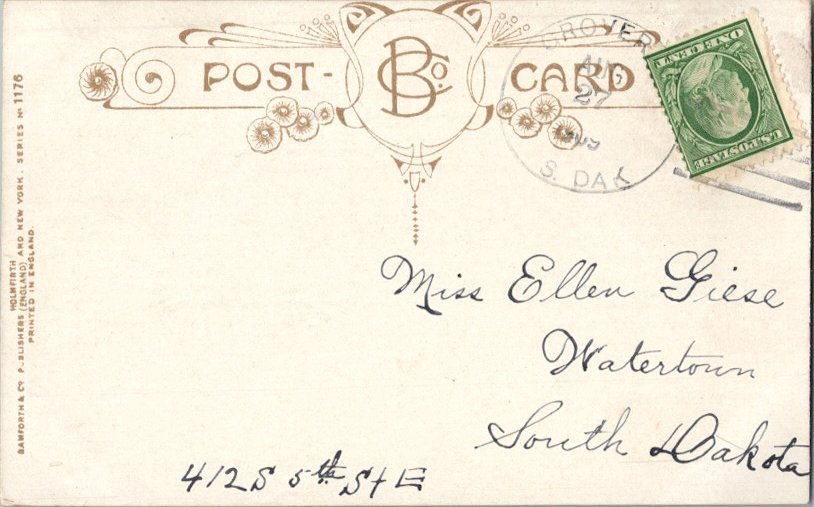 POST-CARD
B Co.
GROVER
AUG
27
S. DAK
U.S. POSTAGE
ONE CENT
Miss Ellen Giese
Watertown
South Dakota
412 S 5th St E
BAMFORTH & CO PUBLISHERS (ENGLAND) AND NEW YORK. SERIES NO 1176
HOLMFIRTH
PRINTED IN ENGLAND.